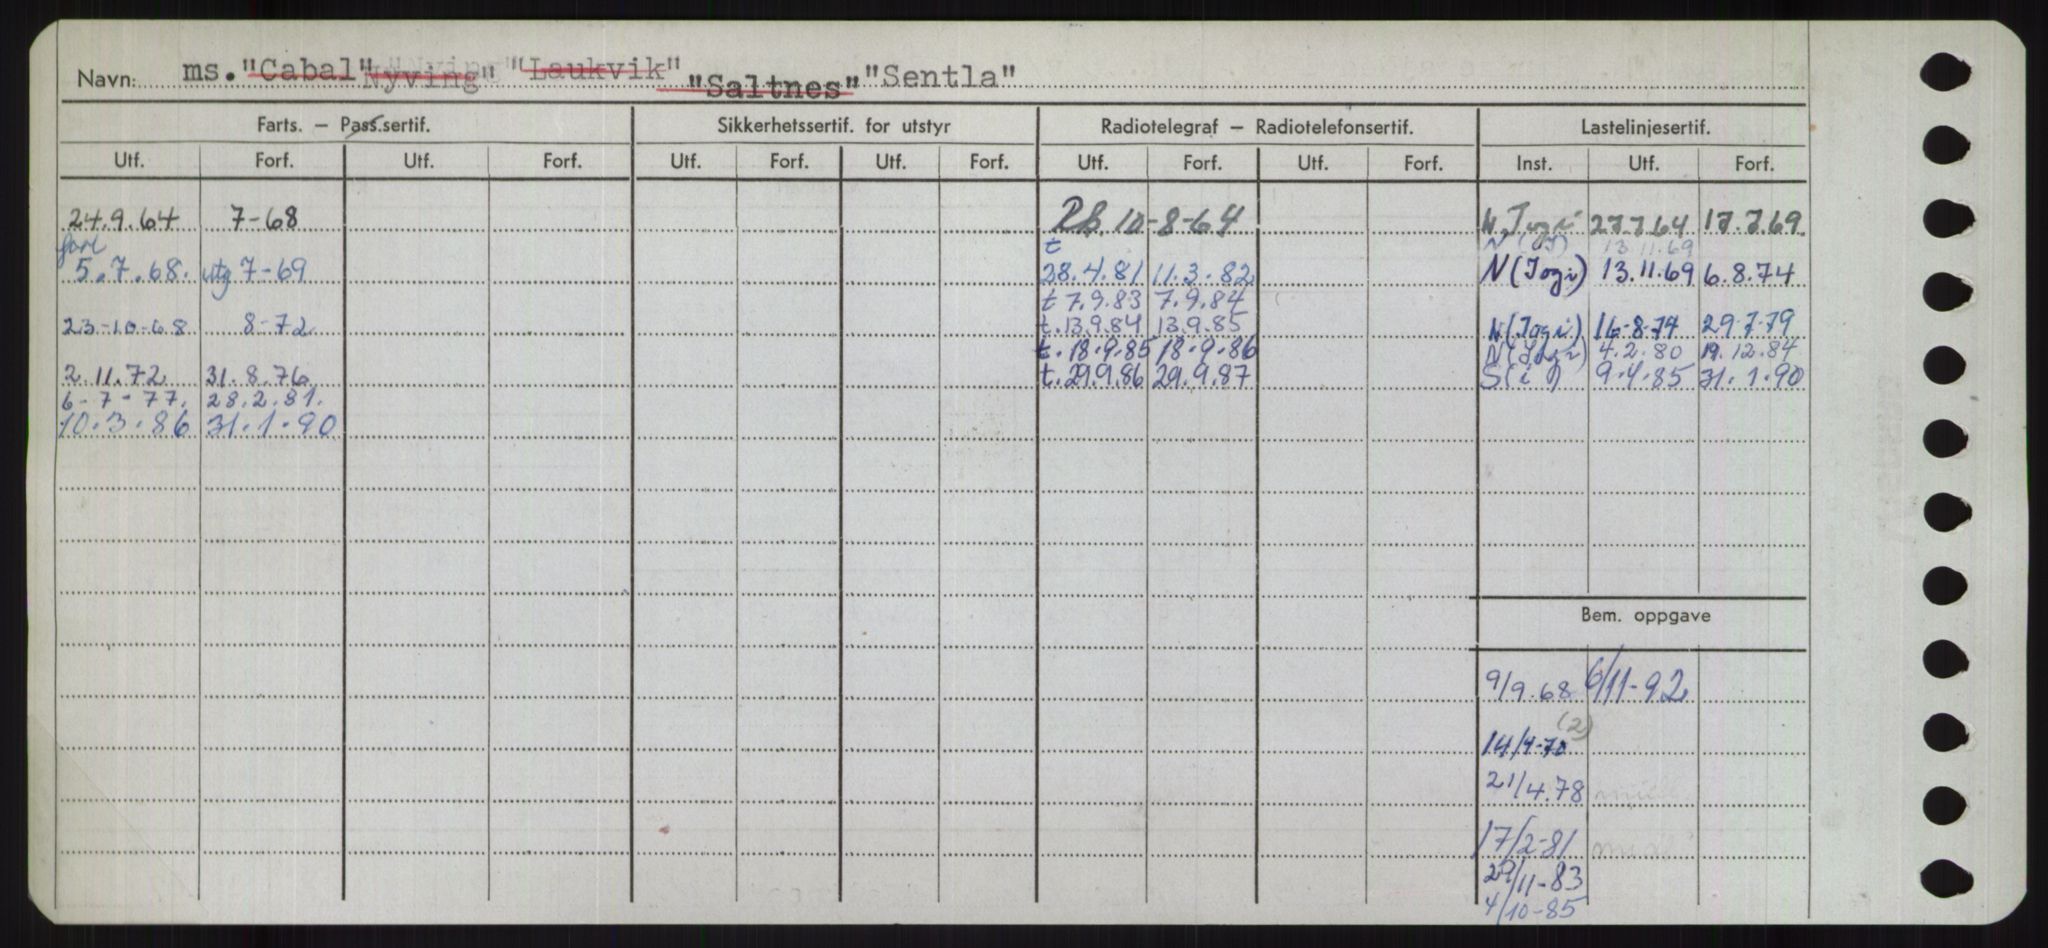 Navn: ms. "Cabal" "Nyving" "Laukvik" "Saltnes" "Sentla"
Farts. — Pass.sertif. Sikkerhetssertif. for utstyr Radiotelegraf — Radiotelefonsertif. Lastelinjesertif.
Utf. Forf. Utf. Forf. Utf. Forf. Utf. Forf. Utf. Forf. Utf. Forf. Inst. Utf. Forf.
24.9.64 7-68 10-8-64 27.7.64 17.7.69
forl t 13.11.69
5.7.68. utg 7-69 28.4.81 11.3.82 N (Jogi) 13.11.69 6.8.74
t 7.9.83 7.9.84
23-10-68 8-72 t. 13.9.84 13.9.85 N (Jogi) 16-8-74 29-7-79
t. 18.9.85 18.9.86 4.2.80 19.12.84
2.11.72 31.8.76 t. 29.9.86 29.9.87 9.4.85 31.1.90
6-7-77. 28.2.81.
10.3.86 31.1.90
Bem. oppgave
9/9.68 6/11-92
(2)
14/4-70
21/4.78
17/2-81
29/11-83
4/10-85